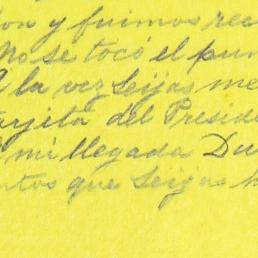 ion y fuimos rec
No se tocó el pun
A la vez Seijas me
arjita del Preside
mi llegada Du
ntos que Seijas h